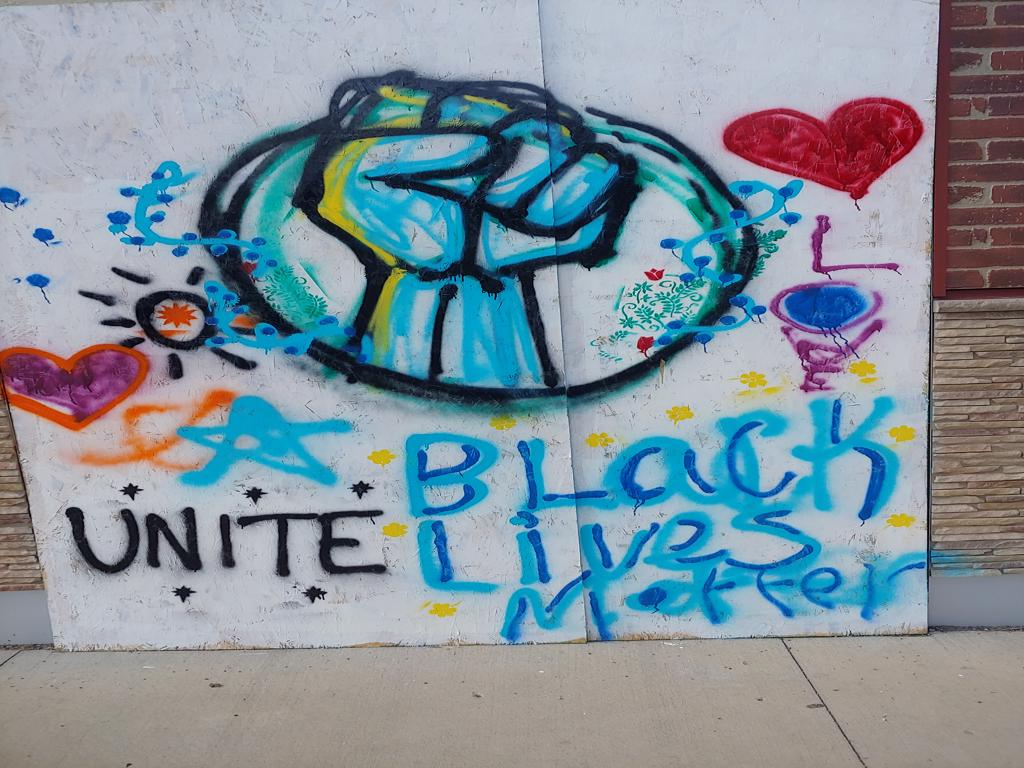 L
O
V
E
UNITE
BLack
Lives
Matter